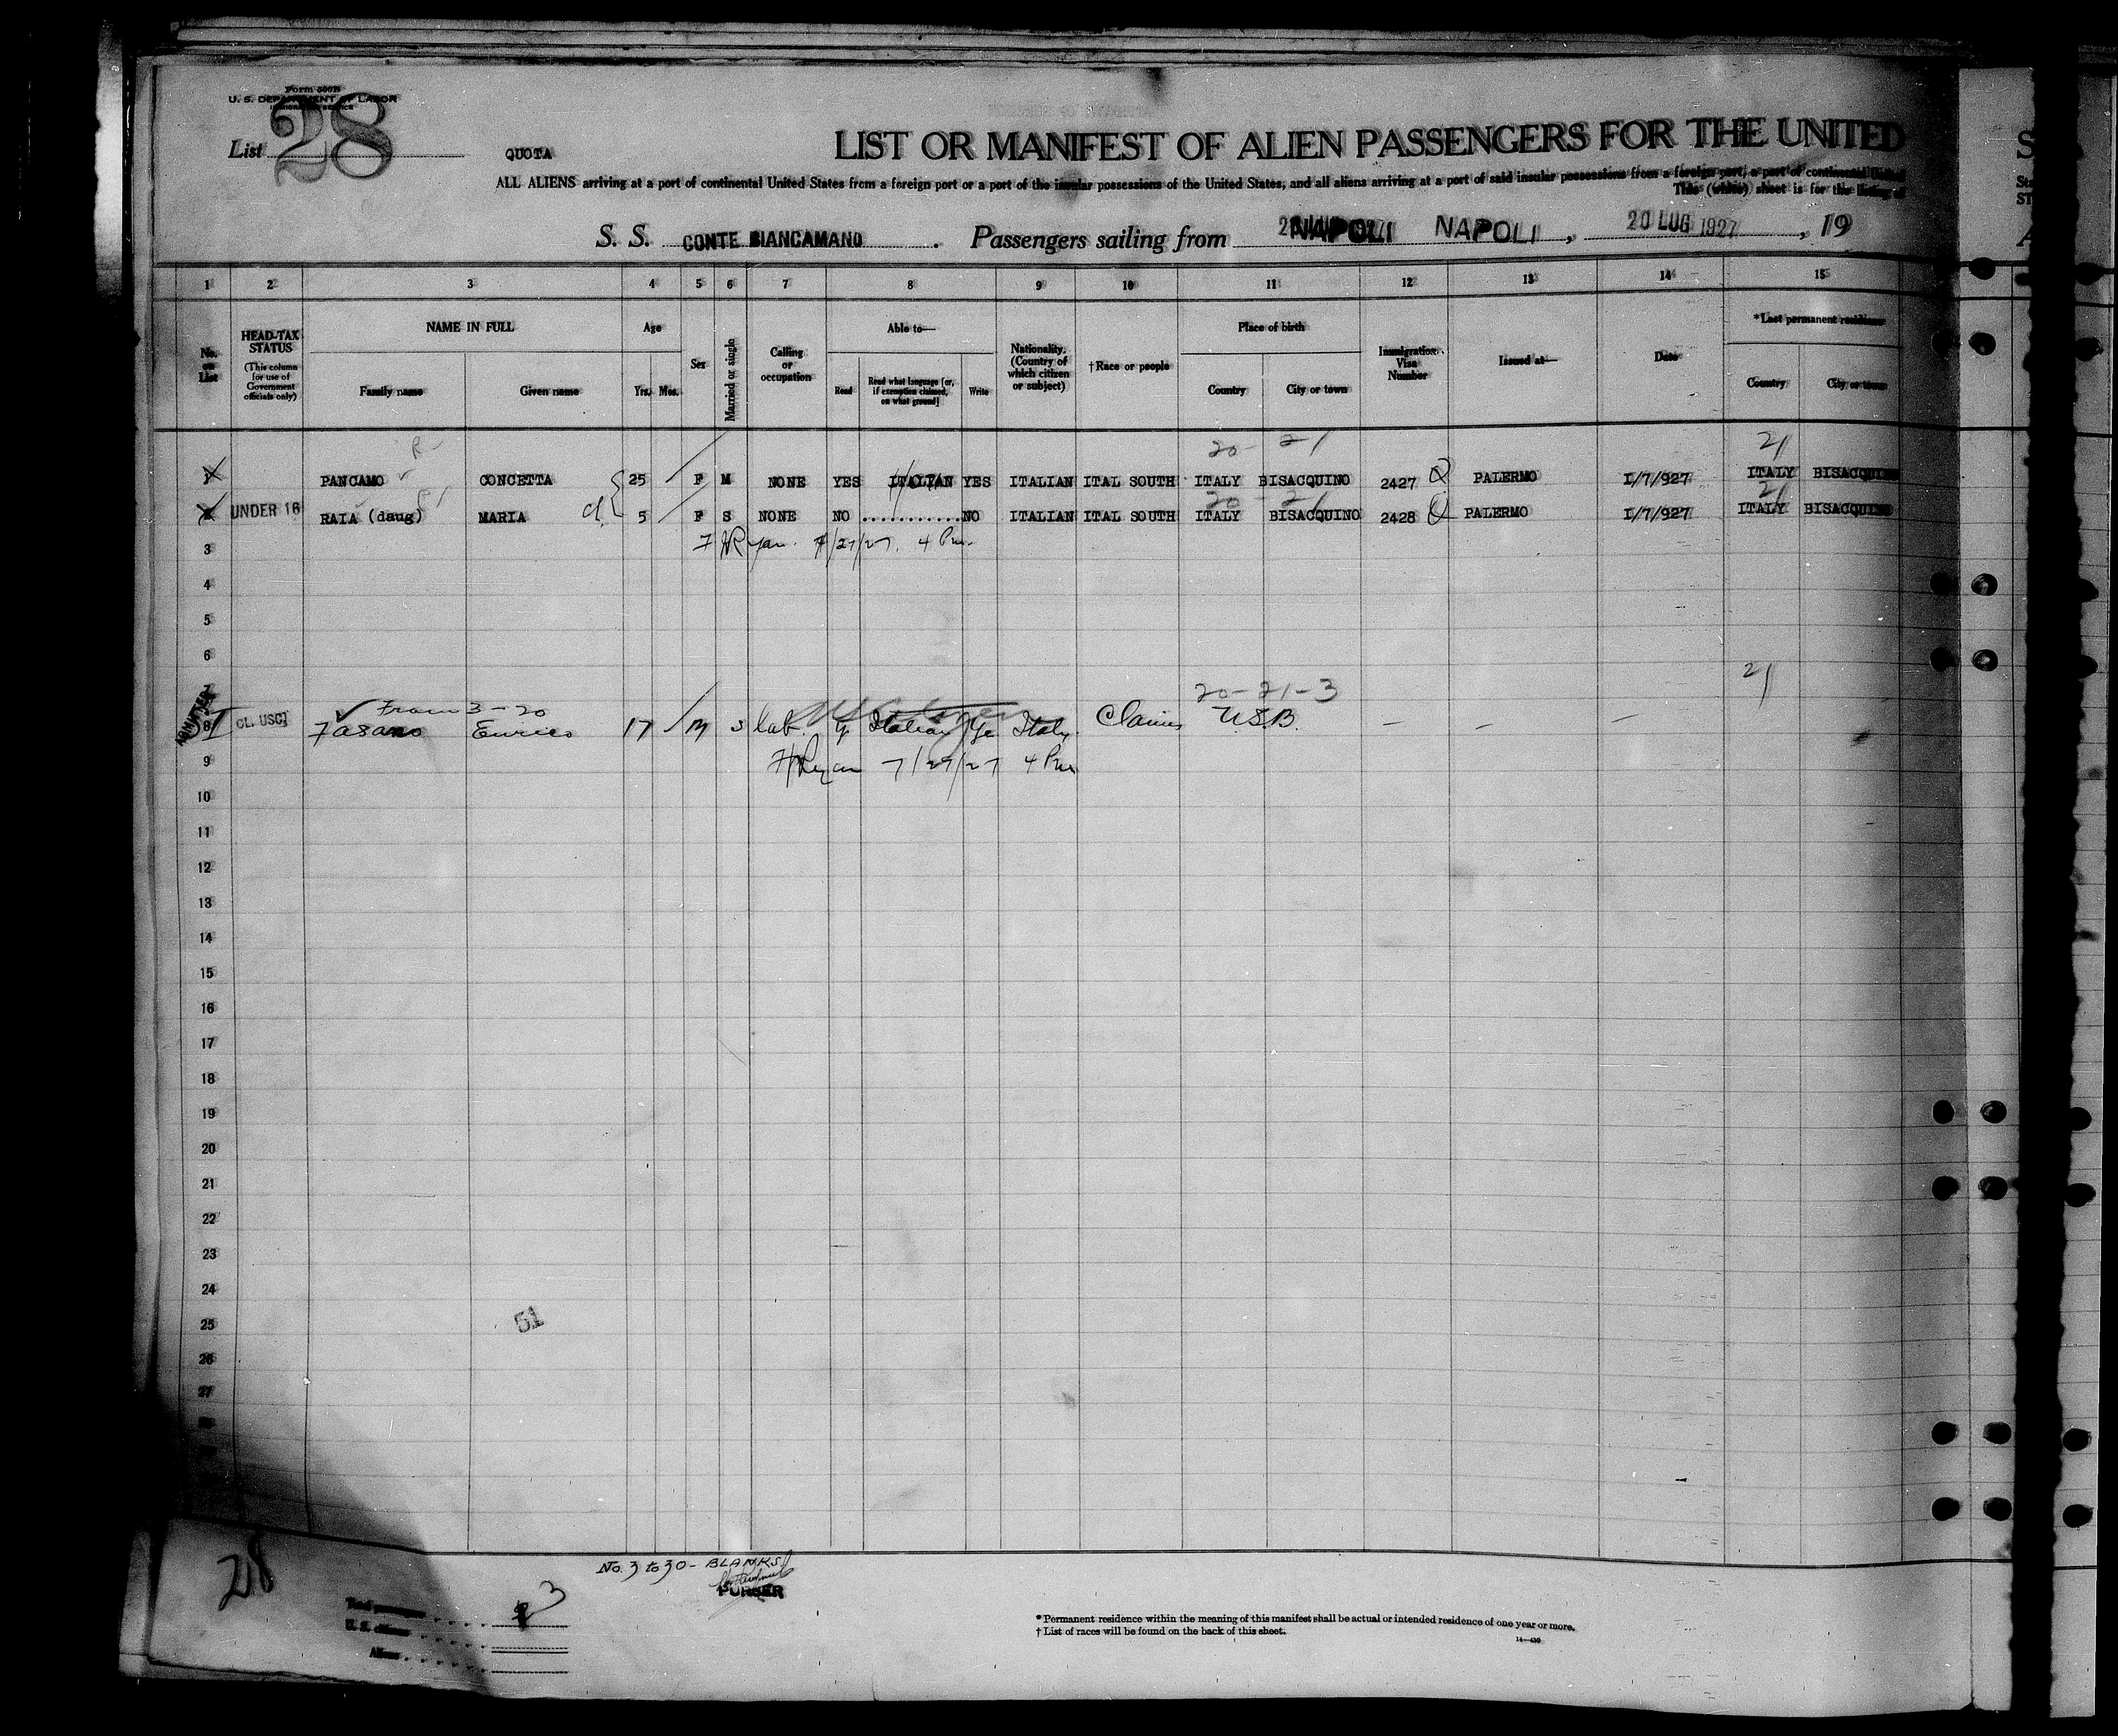 Form 500B
U. S. DEPARTMENT OF LABOR
IMMIGRATION SERVICE
List 28
QUOTA
LIST OR MANIFEST OF ALIEN PASSENGERS FOR THE UNITED
ALL ALIENS arriving at a port of continental United States from a foreign port or a port of the insular possessions of the United States, and all aliens arriving at a port of said insular possessions from a foreign port, a port of continental United
This (white) sheet is for the listing of
S. S. CONTE BIANCAMANO . Passengers sailing from NAPOLI NAPOLI , 20 LUG 1927 , 19
1 2 3 4 5 6 7 8 9 10 11 12 13 14 15
No. on List
HEAD-TAX STATUS (This column for use of Government officials only)
NAME IN FULL
Family name Given name
Age
Yrs. Mos.
Sex
Married or single
Calling or occupation
Able to—
Read Read what language [or, if exemption claimed, on what ground] Write
Nationality. (Country of which citizen or subject)
†Race or people
Place of birth
Country City or town
Immigration Visa Number
Issued at—
Date
*Last permanent residence
Country City or town
R- 20- 21 21
1 PANCAMO CONCETTA 25 F M NONE YES ITALIAN YES ITALIAN ITAL SOUTH ITALY BISACQUINO 2427 Q PALERMO I/7/927 ITALY BISACQUINO
20 - 21 21
2 UNDER 16 RAIA (daug) MARIA 5 F S NONE NO ............ NO ITALIAN ITAL SOUTH ITALY BISACQUINO 2428 Q PALERMO I/7/927 ITALY BISACQUINO
3 Ryan. 7/27/27. 4 Pm.
4
5
6
7 From 3-20 20-21-3 21
8 ADMITTED CL. USC Fasano Enrico 17 M S lab. y Italian ye Italy Claims U.S.B. — — —
9 Ryan 7/29/27 4 Pm
10
11
12
13
14
15
16
17
18
19
20
21
22
23
24
25
51
26
27
28
No. 3 to 30 - BLANKS
PURSER
28
Total passengers 3
U. S. citizens
Aliens
* Permanent residence within the meaning of this manifest shall be actual or intended residence of one year or more.
† List of races will be found on the back of this sheet.
14—430